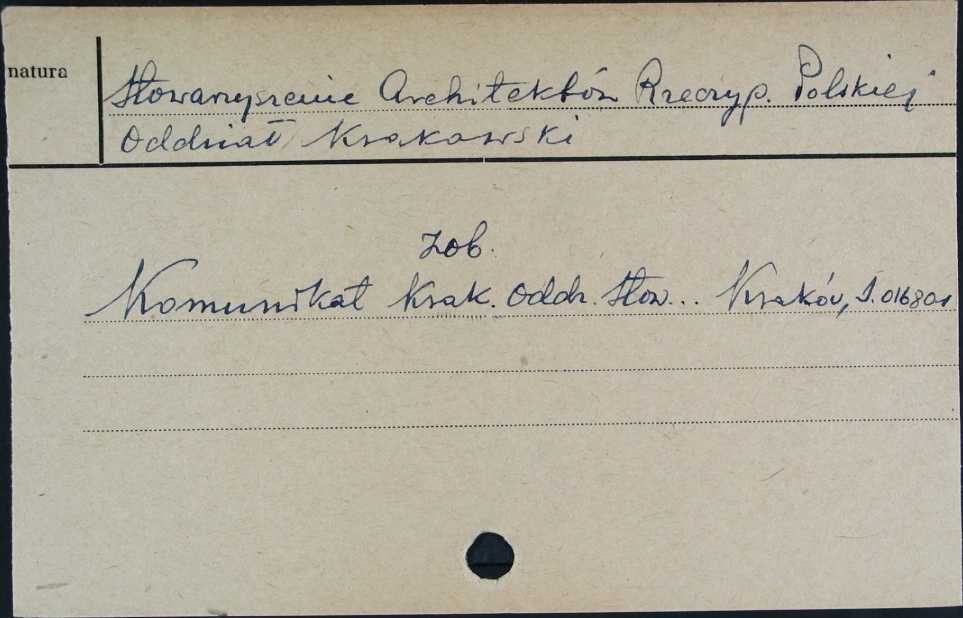 natura
Stowarzyszenie Architektów Rzeczyp. Polskiej
Oddział Krakowski
zob.
Komunikat Krak. Oddz. Stow... Kraków, S.016801